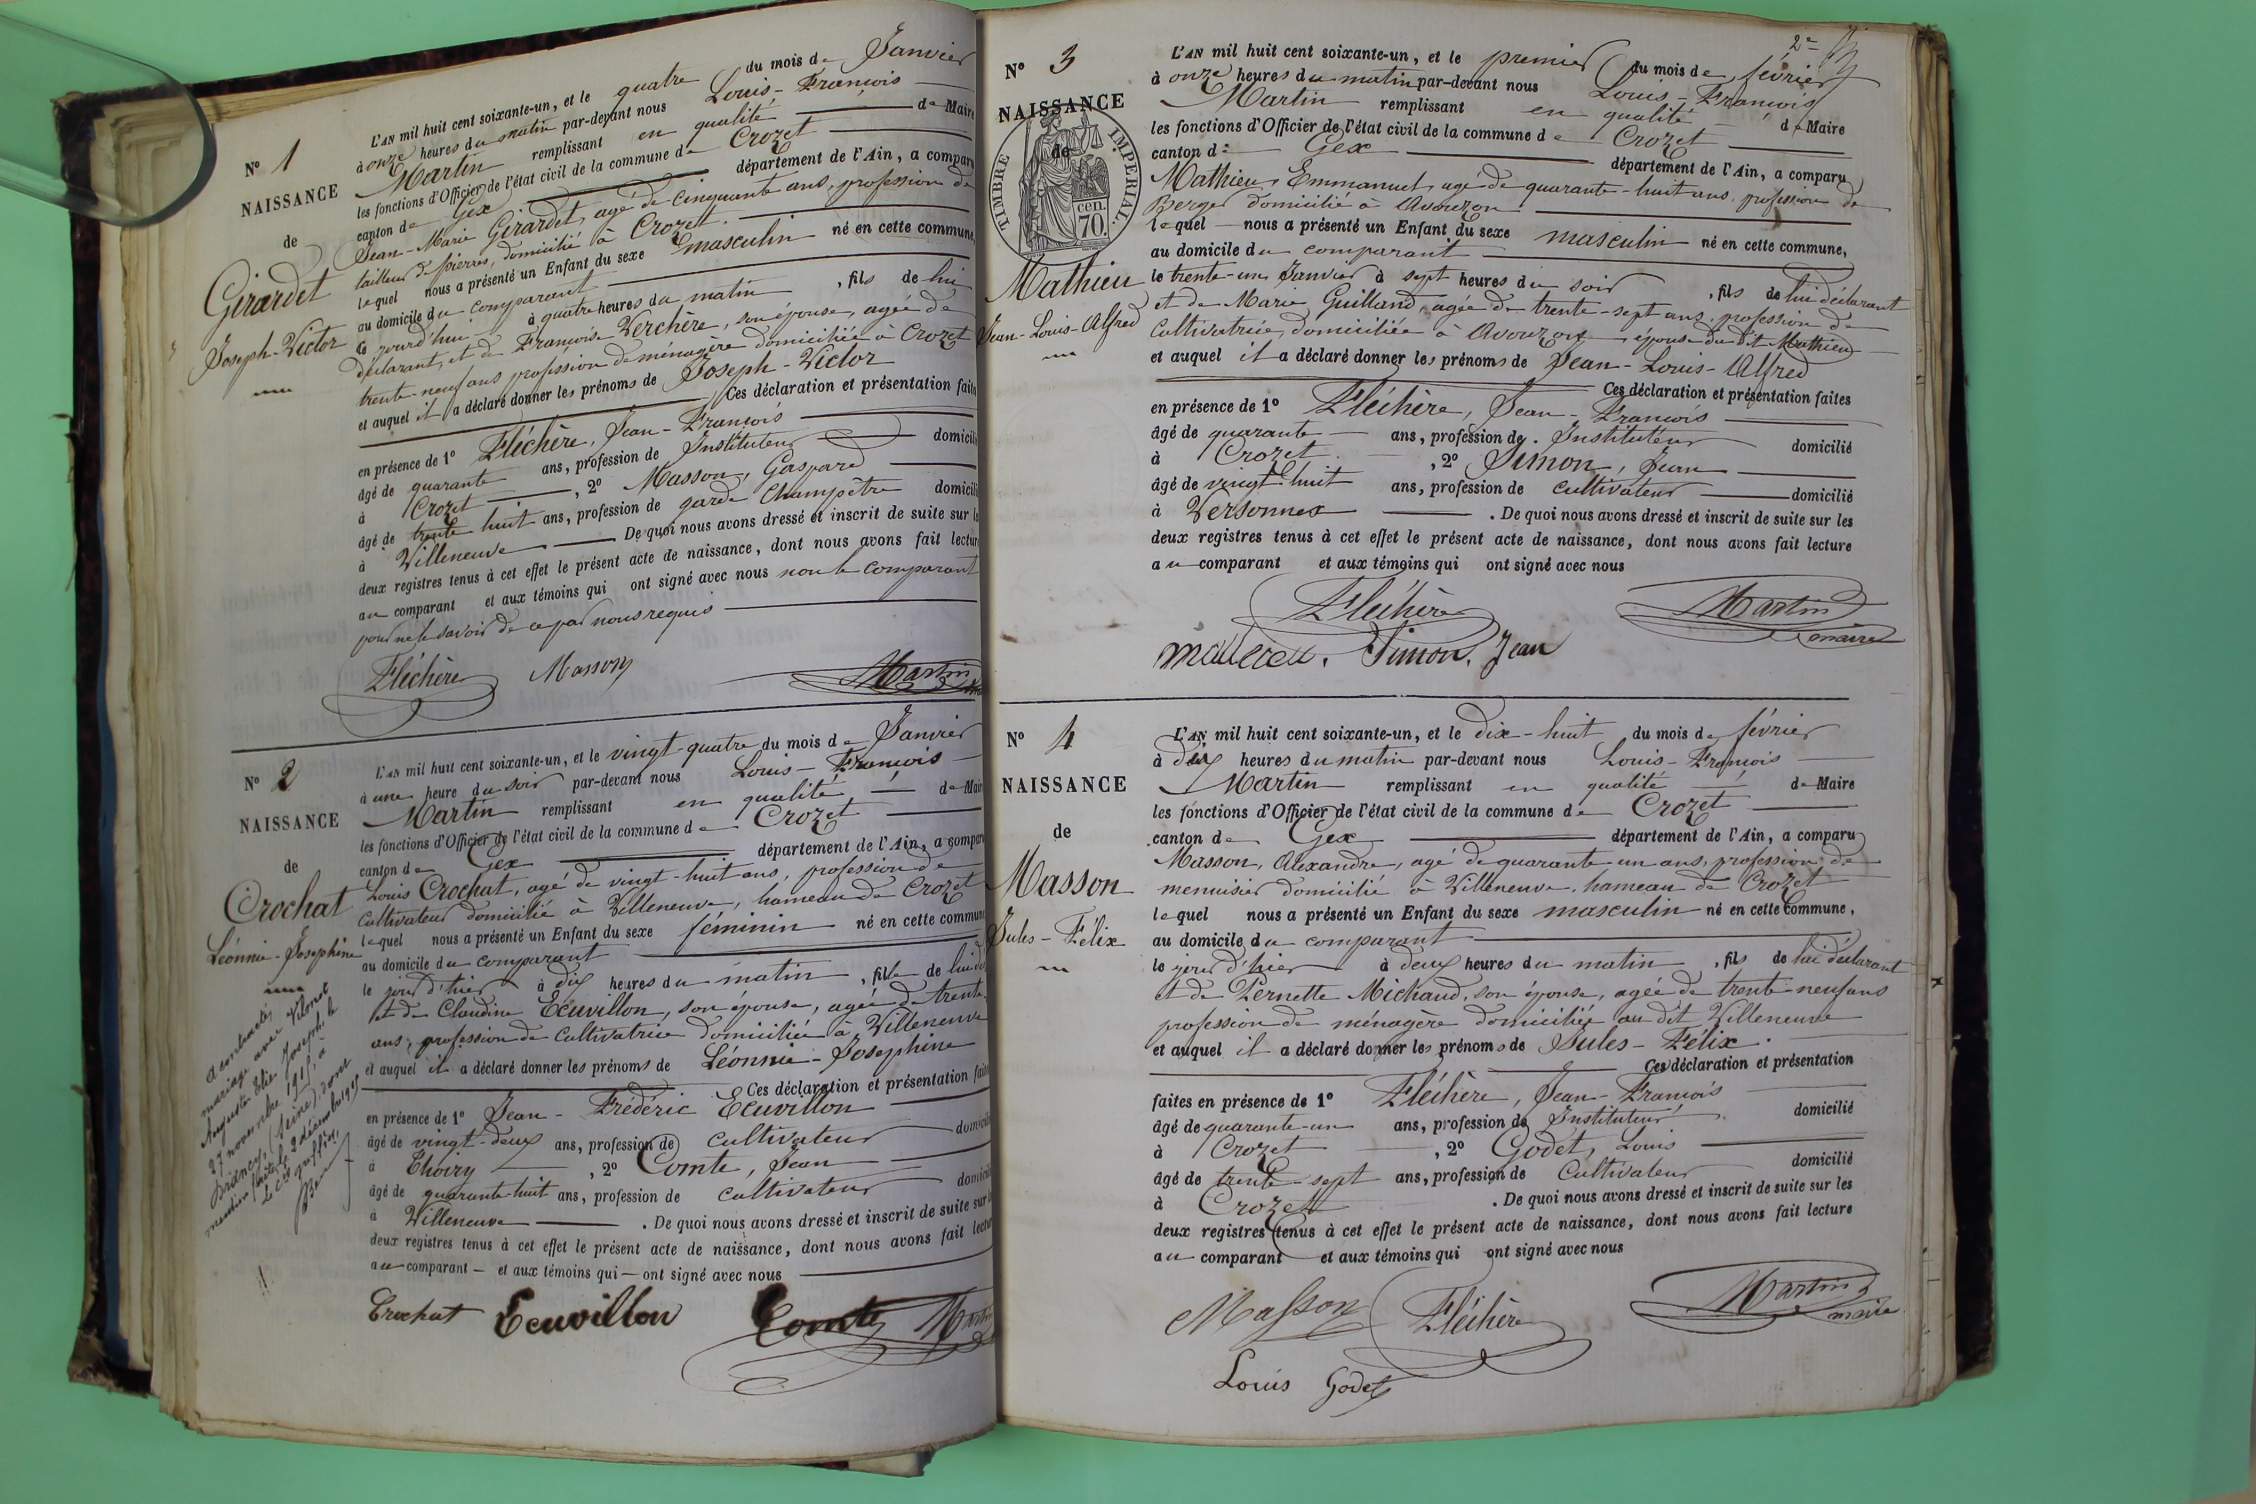 N° 1
NAISSANCE
de
Girardet
Joseph-Victor
L'AN mil huit cent soixante-un, et le quatre du mois de Janvier
à onze heures du matin par-devant nous Louis-François
Martin remplissant en qualité de Maire
les fonctions d'Officier de l'état civil de la commune de Crozet
canton de Gex département de l'Ain, a comparu
Jean-Marie Girardet, agé de cinquante ans, profession de
tailleur de pierres, domicilié à Crozet.
lequel nous a présenté un Enfant du sexe masculin né en cette commune,
au domicile du comparant
ce jourd'hui à quatre heures du matin, fils de lui
déclarant, et de Françoise Verchère, son épouse, agée de
trente-neuf ans profession de ménagère domiciliée à Crozet
et auquel il a déclaré donner les prénoms de Joseph-Victor
Ces déclaration et présentation faites
en présence de 1° Fléchère, Jean-François
âgé de quarante ans, profession de Instituteur domicilié
à Crozet, 2° Masson, Gaspard
âgé de trente huit ans, profession de garde Champêtre domicilié
à Villeneuve De quoi nous avons dressé et inscrit de suite sur les
deux registres tenus à cet effet le présent acte de naissance, dont nous avons fait lecture
au comparant et aux témoins qui ont signé avec nous non le comparant
pour ne le savoir de ce par nous requis
Fléchère Masson Martin
N° 2
NAISSANCE
de
Crochat
Léonnie-Josephine
a contracté
mariage avec
Auguste Elie Joseph, le
27 novembre 1915, à
(Seine), dont
mention faite le 2 décembre 1915
Le greffier,
L'AN mil huit cent soixante-un, et le vingt-quatre du mois de Janvier
à une heure du soir par-devant nous Louis-François
Martin remplissant en qualité de Maire
les fonctions d'Officier de l'état civil de la commune de Crozet
canton de Gex département de l'Ain, a comparu
Louis Crochat, agé de vingt-huit ans, profession de
cultivateur domicilié à Villeneuve, hameau de Crozet
lequel nous a présenté un Enfant du sexe féminin né en cette commune
au domicile du comparant
le jour d'hier à dix heures du matin, fille de lui d
et de Claudine Ecuvillon, son épouse, agée de trente
ans, profession de cultivatrice domiciliée à Villeneuve
et auquel il a déclaré donner les prénoms de Léonnie-Josephine
Ces déclaration et présentation faites
en présence de 1° Jean-Frédéric Ecuvillon
âgé de vingt-deux ans, profession de cultivateur domicilié
à Thoiry, 2° Comte, Jean
âgé de quarante-huit ans, profession de cultivateur domicilié
à Villeneuve. De quoi nous avons dressé et inscrit de suite sur les
deux registres tenus à cet effet le présent acte de naissance, dont nous avons fait lecture
au comparant et aux témoins qui ont signé avec nous
Crochat Ecuvillon Comte Martin
2e
N° 3
NAISSANCE
de
TIMBRE IMPERIAL.
cen.
70.
Mathieu
Jean-Louis-Alfred
L'AN mil huit cent soixante-un, et le premier du mois de février
à onze heures du matin par-devant nous Louis-François
Martin remplissant en qualité de Maire
les fonctions d'Officier de l'état civil de la commune de Crozet
canton de Gex département de l'Ain, a comparu
Mathieu, Emmanuel, agé de quarante-huit ans, profession de
Berger domicilié à Avouzon
lequel nous a présenté un Enfant du sexe masculin né en cette commune,
au domicile du comparant
le trente-un Janvier à sept heures du soir, fils de lui déclarant
et de Marie Guilland, agée de trente-sept ans, profession de
Cultivatrice, domiciliée à Avouzon, épouse du dit Mathieu
et auquel il a déclaré donner les prénoms de Jean-Louis-Alfred
Ces déclaration et présentation faites
en présence de 1° Fléchère, Jean-François
âgé de quarante ans, profession de Instituteur domicilié
à Crozet, 2° Simon, Jean
âgé de vingt-huit ans, profession de cultivateur domicilié
à Versonnex. De quoi nous avons dressé et inscrit de suite sur les
deux registres tenus à cet effet le présent acte de naissance, dont nous avons fait lecture
au comparant et aux témoins qui ont signé avec nous
Fléchère Martin
maire
Simon, Jean
N° 4
NAISSANCE
de
Masson
Jules-Félix
L'AN mil huit cent soixante-un, et le dix-huit du mois de février
à dix heures du matin par-devant nous Louis-François
Martin remplissant en qualité de Maire
les fonctions d'Officier de l'état civil de la commune de Crozet
canton de Gex département de l'Ain, a comparu
Masson, Alexandre, agé de quarante-un ans, profession de
menuisier domicilié à Villeneuve, hameau de Crozet
lequel nous a présenté un Enfant du sexe masculin né en cette Commune,
au domicile du comparant
le jour d'hier à deux heures du matin, fils de lui déclarant
et de Pernette Michaud, son épouse, agée de trente-neuf ans
profession de ménagère domiciliée au dit Villeneuve
et auquel il a déclaré donner les prénoms de Jules-Félix.
Ces déclaration et présentation
faites en présence de 1° Fléchère, Jean-François
âgé de quarante-un ans, profession de Instituteur domicilié
à Crozet, 2° Godet, Louis
âgé de trente-sept ans, profession de Cultivateur domicilié
à Crozet. De quoi nous avons dressé et inscrit de suite sur les
deux registres tenus à cet effet le présent acte de naissance, dont nous avons fait lecture
au comparant et aux témoins qui ont signé avec nous
Masson Fléchère Martin
maire
Louis Godet